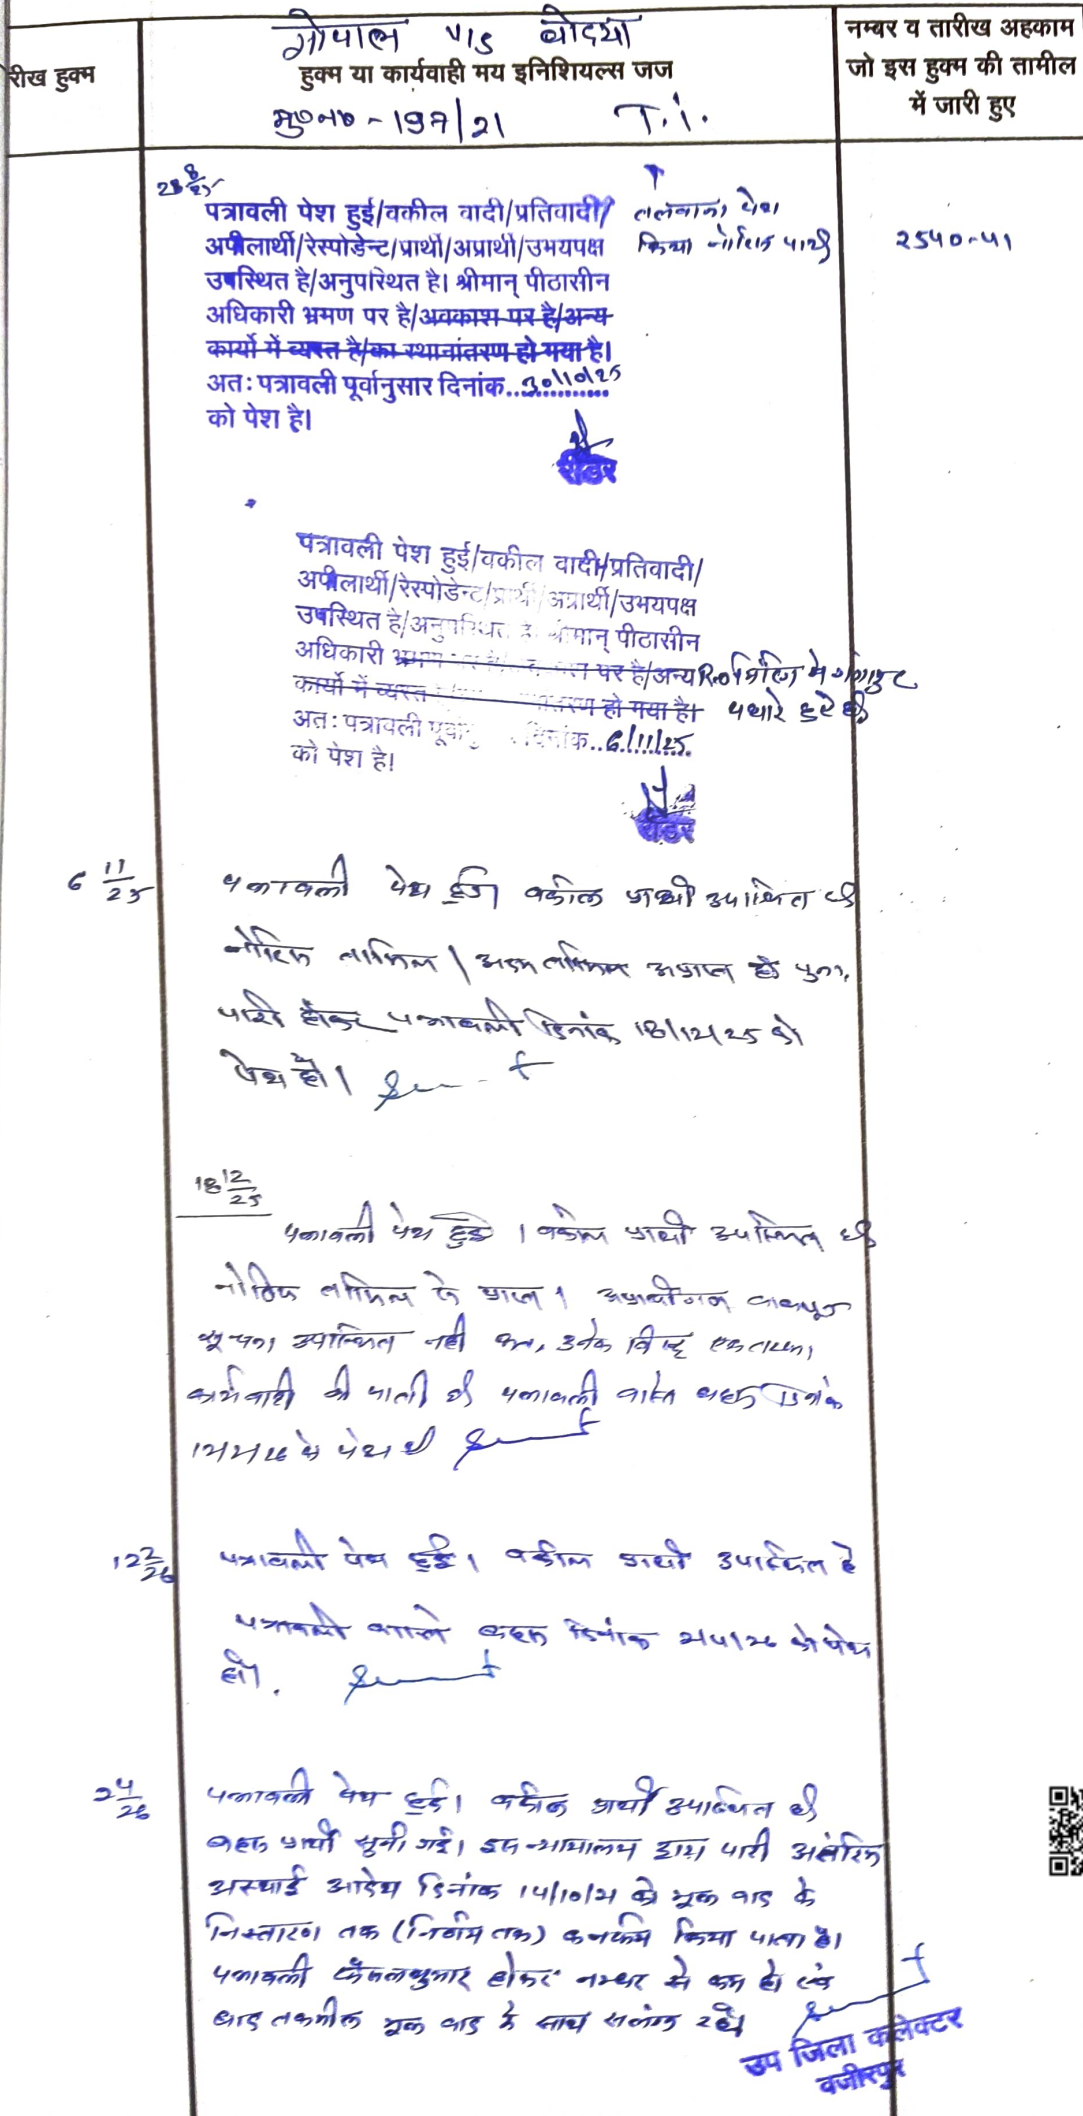 गोपाल v/s बोदया
रीख हुक्म
हुक्म या कार्यवाही मय इनिशियल्स जज
मु०न० - 197/21 T.i.
नम्बर व तारीख अहकाम
जो इस हुक्म की तामील
में जारी हुए
28/8/25
पत्रावली पेश हुई/वकील वादी/प्रतिवादी/ तलबाना पेश
अपीलार्थी/रेस्पोडेन्ट/प्रार्थी/अप्रार्थी/उभयपक्ष किया नोटिस जारी 2540-41
उपस्थित है/अनुपस्थित है। श्रीमान् पीठासीन
अधिकारी भ्रमण पर है/अवकाश पर है/अन्य
कार्यो में व्यस्त है/का स्थानांतरण हो गया है।
अतः पत्रावली पूर्वानुसार दिनांक..30/10/25
को पेश है।
रीडर
पत्रावली पेश हुई/वकील वादी/प्रतिवादी/
अपीलार्थी/रेस्पोडेन्ट/प्रार्थी/अप्रार्थी/उभयपक्ष
उपस्थित है/अनुपस्थित है। श्रीमान् पीठासीन
अधिकारी भ्रमण पर है/ पर है/अन्य मिटिंग मे गंगापुर
कार्यो में व्यस्त हो गया है। पधारे हुये है
अतः पत्रावली पूर्वानु दिनांक..6/11/25
को पेश है।
रीडर
6 11/25 पत्रावली पेश हुई। वकील प्रार्थी उपस्थित है
नोटिस तामिल / अदम तामिल अप्राप्त है पुनः
जारी होकर पत्रावली दिनांक 18/12/25 को
पेश हो।
18 12/25
पत्रावली पेश हुई । वकील प्रार्थी उपस्थित है
नोटिस तामिल के प्राप्त । अप्रार्थीगण बावजूद
सूचना उपस्थित नही अतः उनके विरूद्ध एकतरफा
कार्यवाही की जाती है पत्रावली वास्ते बहस दिनांक
12/2/26 को पेश हो
12 2/26 पत्रावली पेश हुई। वकील प्रार्थी उपस्थित है
पत्रावली वास्ते बहस दिनांक 2/4/26 को पेश
हो।
2 4/26 पत्रावली पेश हुई। वकील प्रार्थी उपस्थित है
बहस प्रार्थी सुनी गई। इस न्यायालय द्वारा जारी अंतरिम
अस्थाई आदेश दिनांक 14/10/21 को मूल वाद के
निस्तारण तक (निर्णय तक) कनफर्म किया जाता है।
पत्रावली फैसलशुमार होकर नम्बर से कम हो एवं
बाद तकमील मूल वाद के साथ संलग्न रहे
उप जिला कलेक्टर
वजीरपुर